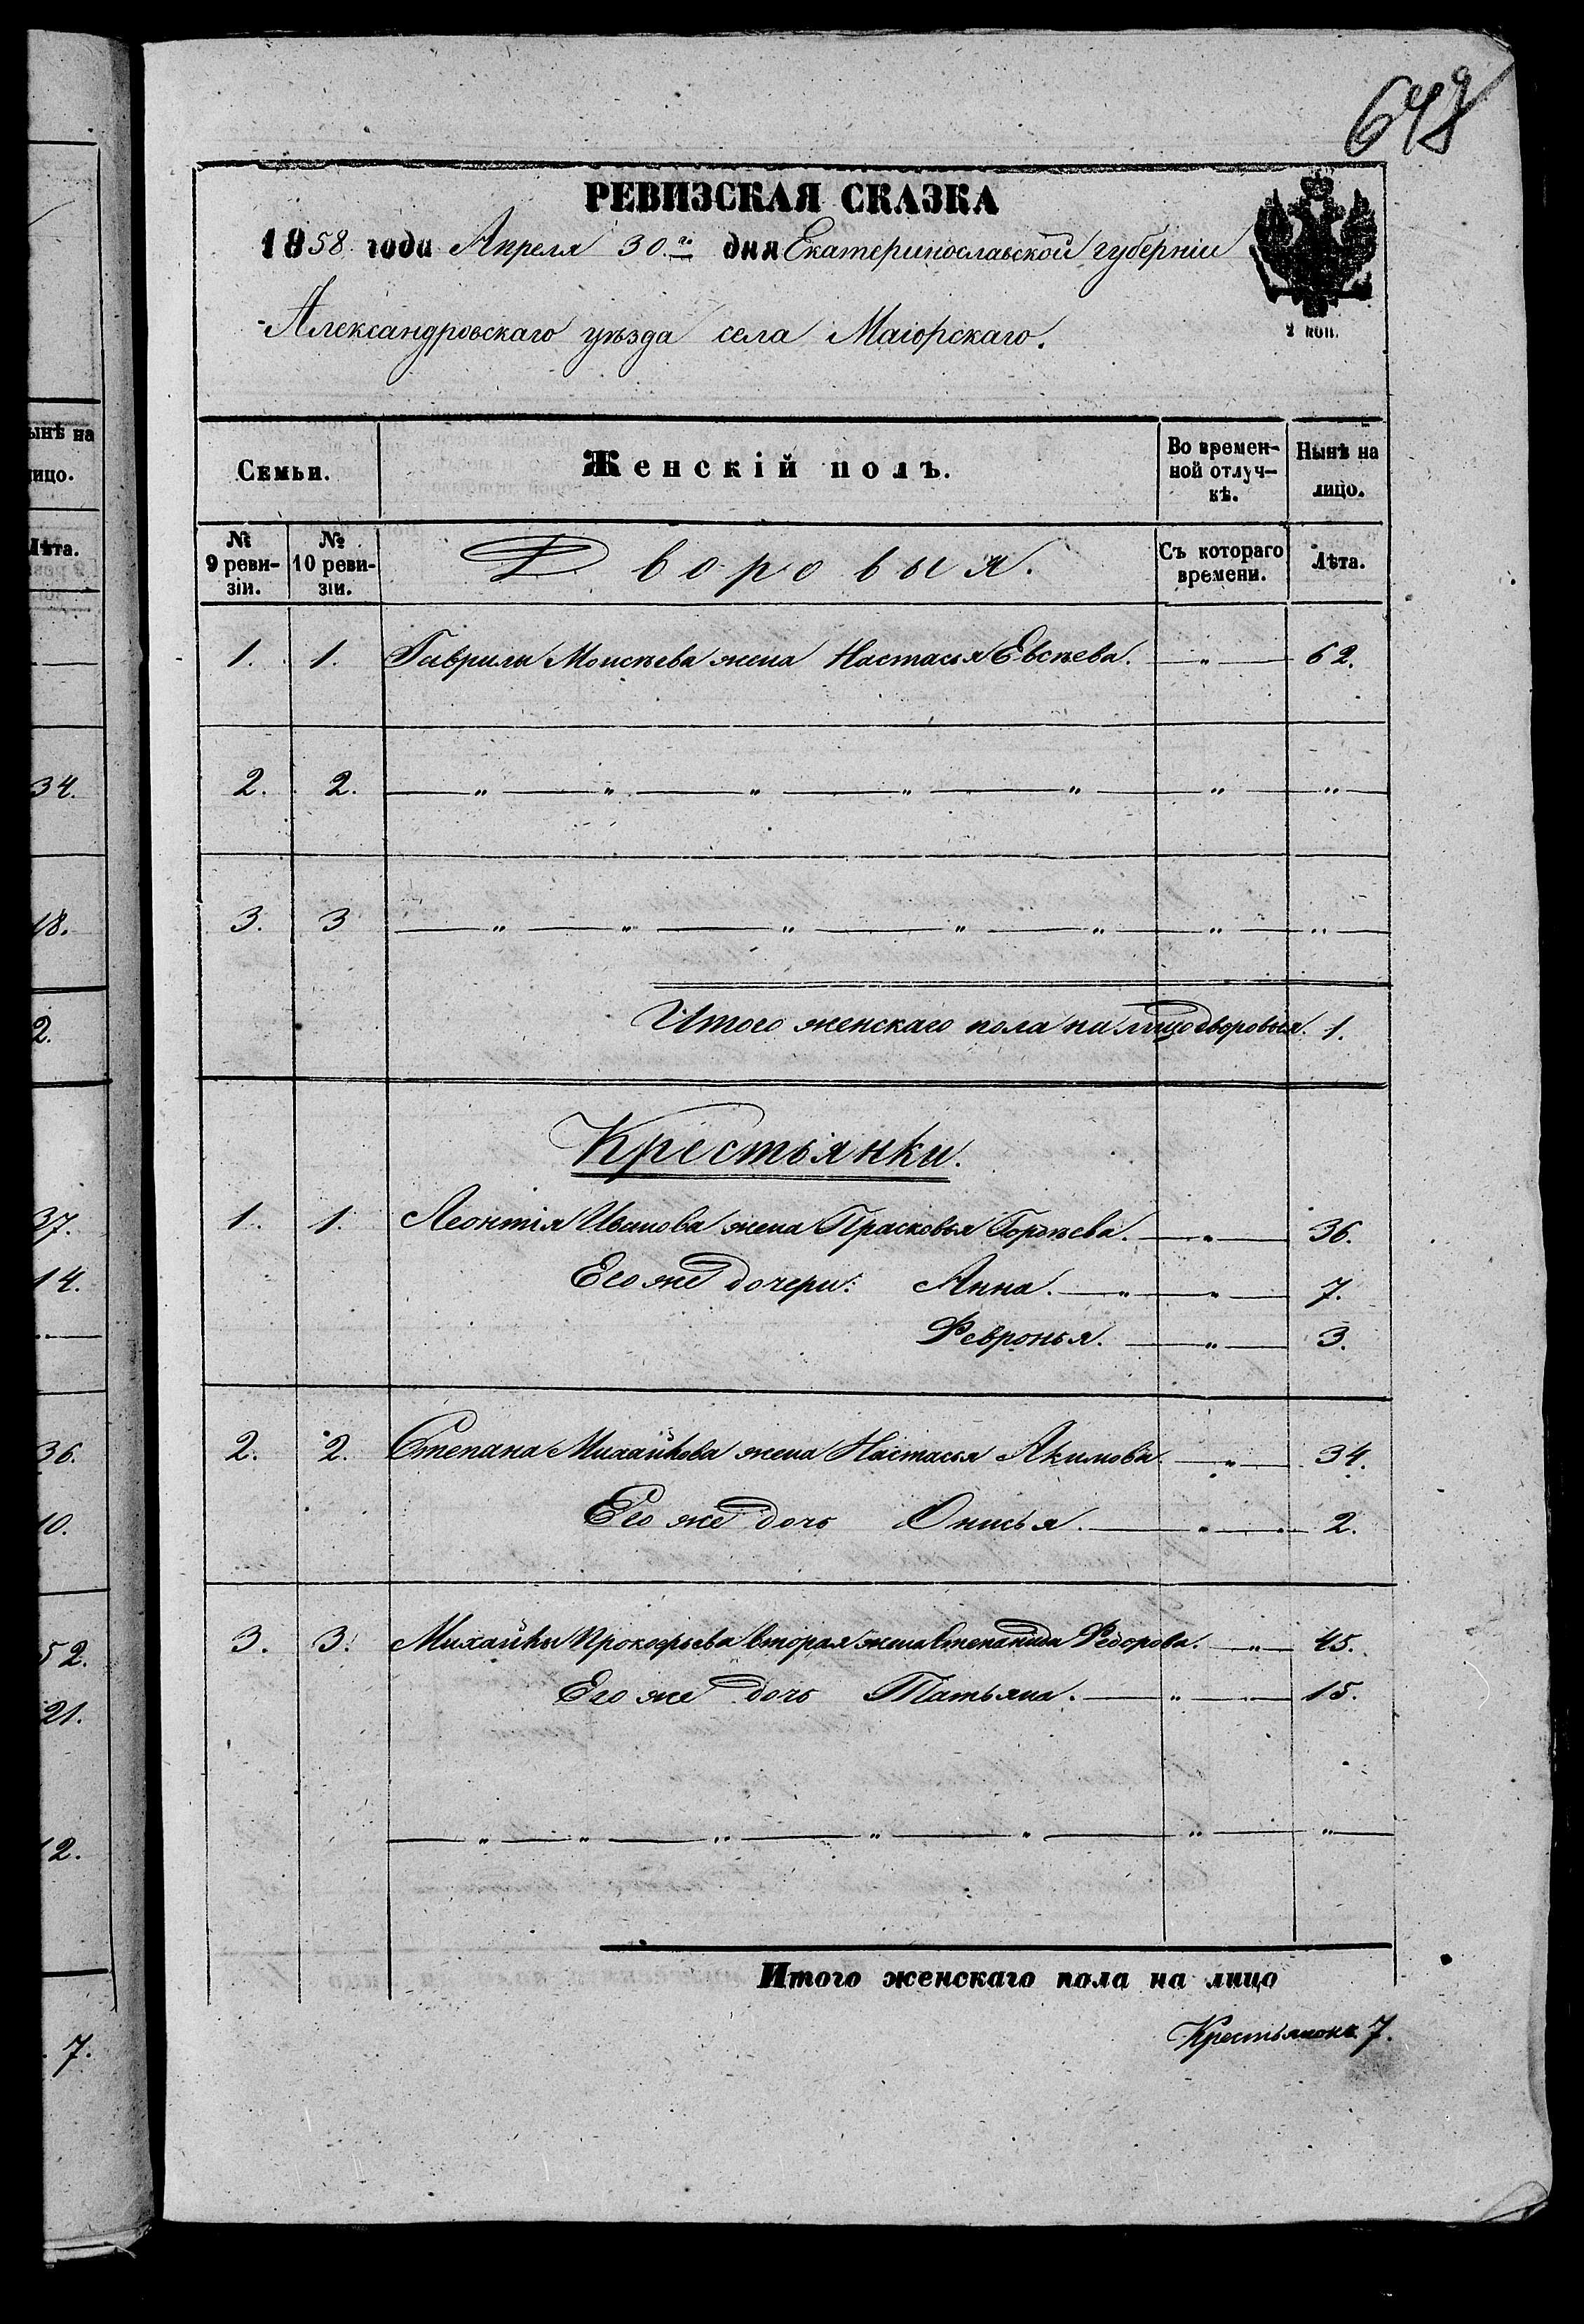 648
РЕВИЗСКАЯ СКАЗКА
1858 года Апреля 30го дня Екатеринославской губерніи
Александровскаго уѣзда села Маіорскаго.
2 коп.
Семьи. Женскій полъ. Во времен-ной отлуч-кѣ. Нынѣ на лицо.
№ 9 реви-зіи. № 10 реви-зіи. Дворовыя. Съ котораго времени. Лѣта.
1. 1. Гаврилы Моисѣева жена Настасья Евсѣева. — " — 62.
2. 2. — " — " — " — " — " — " — " —
3. 3 — " — " — " — " — " — " — " —
Итого женскаго пола на лицо дворовыя. 1.
Крестьянки.
1. 1. Леонтія Иванова жена Прасковья Гордѣева. — " — 36.
Его же дочери: Анна. — " — " — 7.
Февронья. — " — 3.
2. 2. Степана Михайлова жена Настасья Акимова — " — 34.
Его же дочь Онисья. — " — 2.
3. 3. Михайлы Прокофьева вторая жена Степанида Федорова. — " — 45.
Его же дочь Татьяна. — " — 15.
— " — " — " — " — " — " — " —
Итого женскаго пола на лицо
Крестьянокъ 7.
ынѣ на
ицо.
Лѣта.
34.
18.
2.
37.
14.
36.
10.
52.
21.
12.
7.